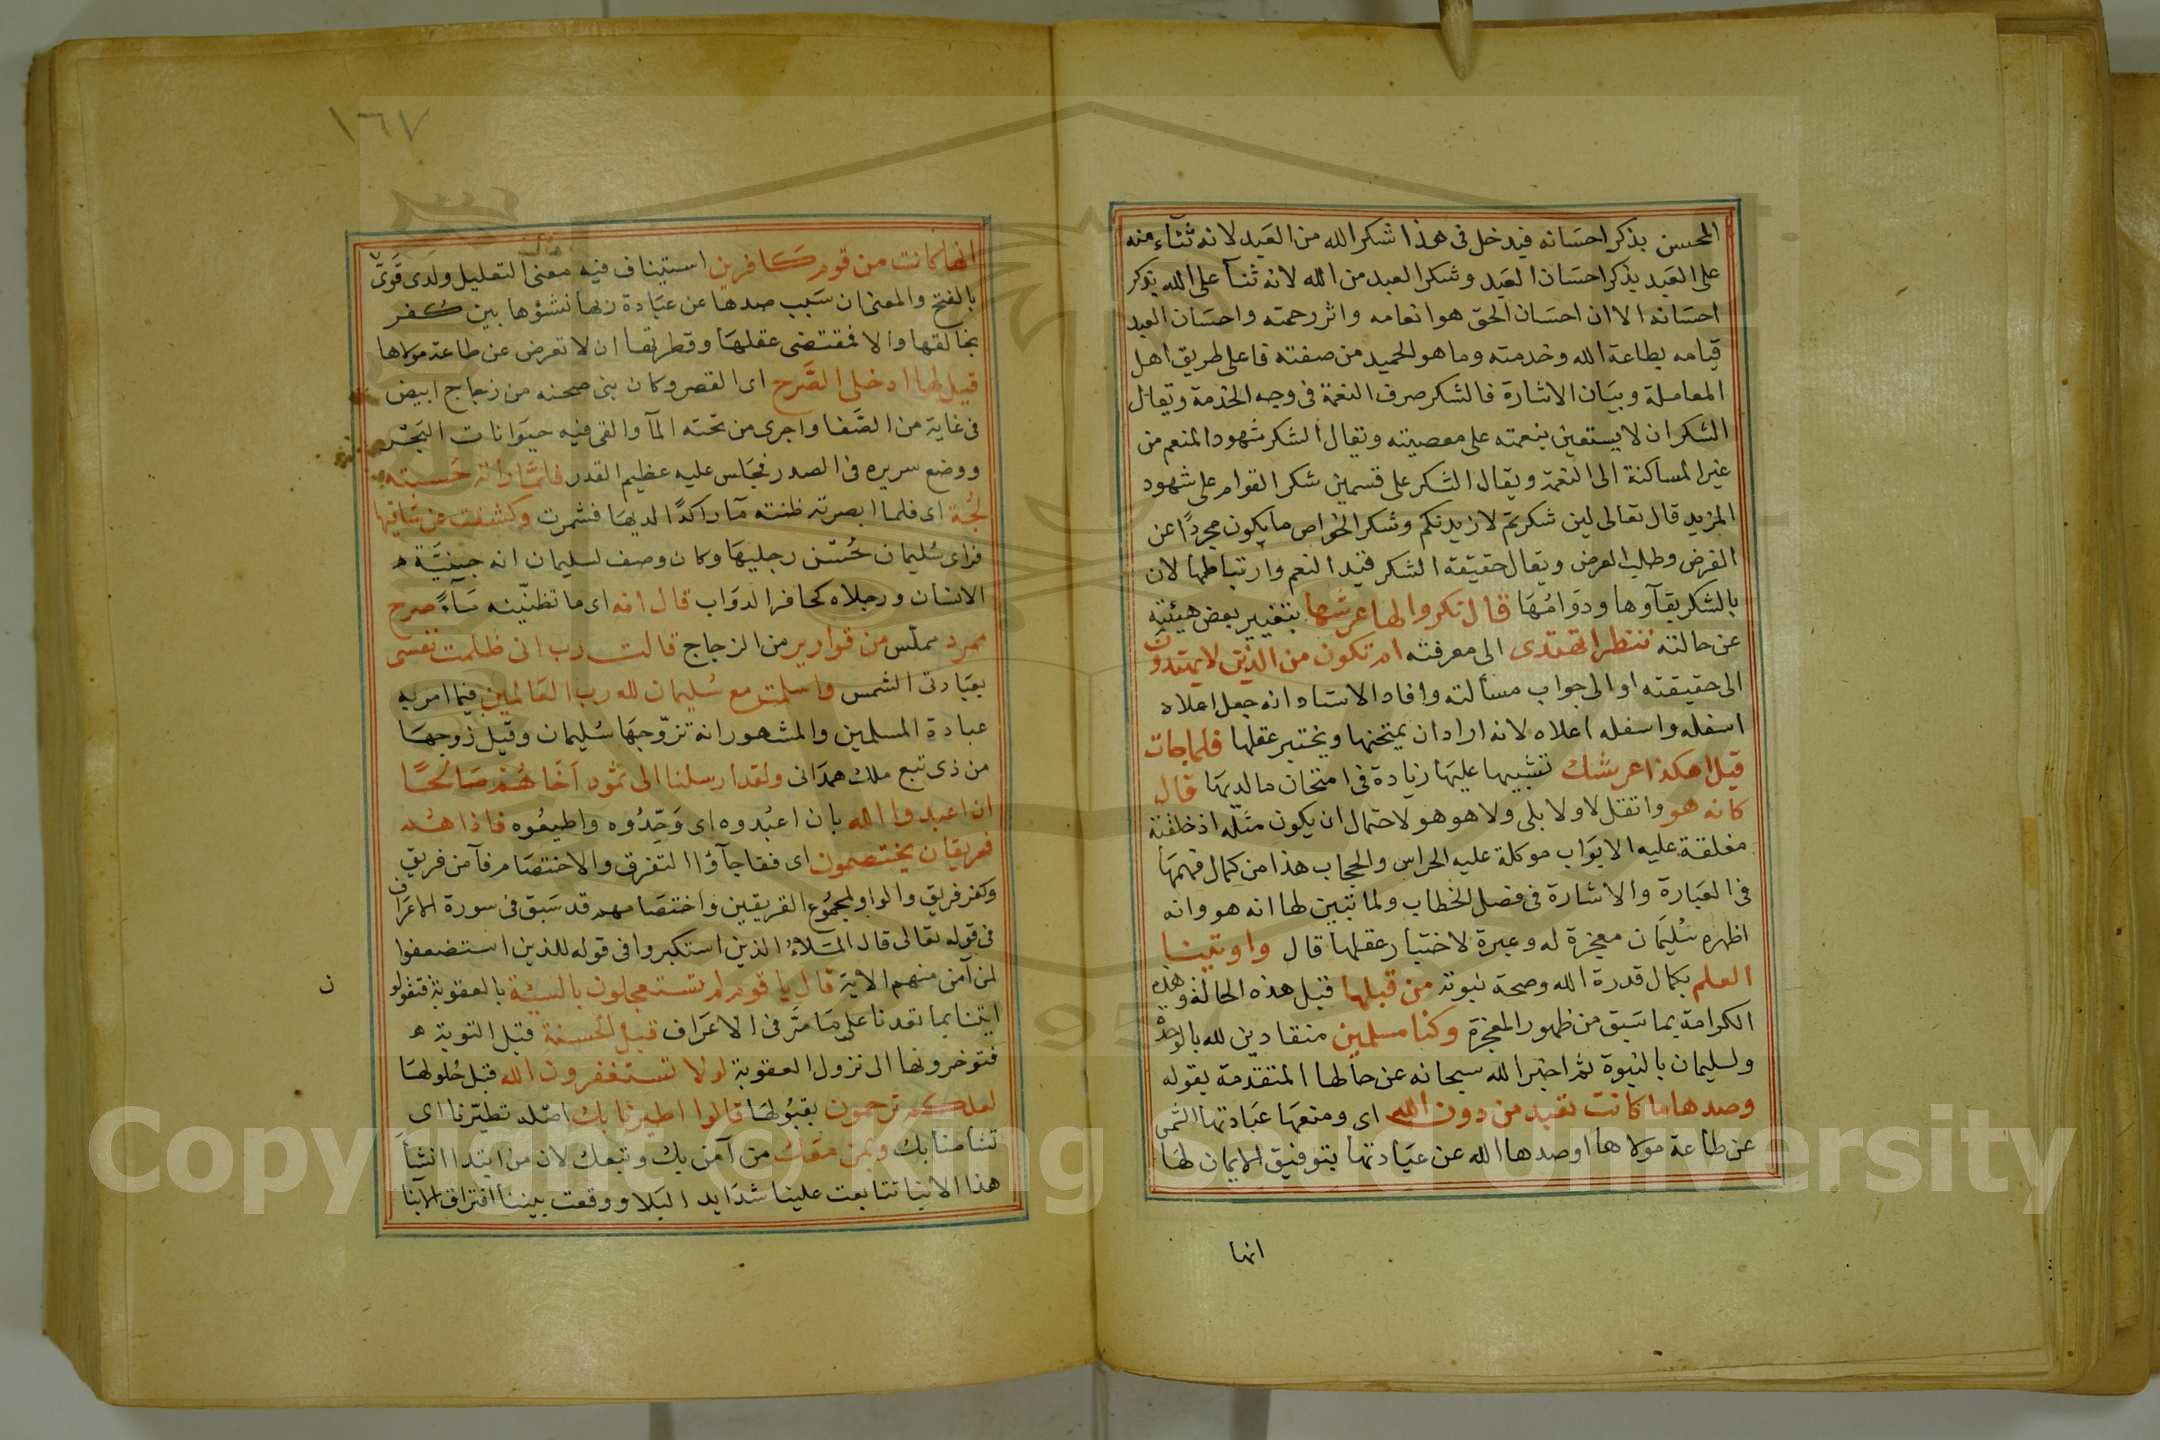 المحسن بذكر احسانه فيدخل في هذا شكر الله من العبد لانه ثنآء منه
على العبد بذكر احسان العبد وشكر العبد من الله لانه ثنآ على الله بذكر
احسانه الا ان احسان الحق هو انعامه واثر رحمته واحسان العبد
قيامه بطاعة الله وخدمته وما هو الحميد من صفته فاعلى طريق اهل
المعاملة وبيان الاشارة فالشكر صرف النعمة في وجه الخدمة ويقال
الشكر ان لا يستعين بنعمته على معصيته ويقال الشكر شهود المنعم من
غير المساكنة الى النعمة ويقال الشكر على قسمين شكر القوام على شهود
المزيد قال تعالى لين شكرتم لازيدنكم وشكر الخواص ما يكون مجردًا عن
الغرض وطلب العرض ويقال حقيقة الشكر قيد النعم وارتباطها لان
بالشكر بقآوها ودوامُهَا قال نكروا لها عرشها بتغيير بعض هيئته
عن حالته ننظر اتهتدى الى معرفته ام تكون من الذين لايهتدون
الى حقيقته او الى جواب مسألته وافاد الاستاد انه جعل اعلاه
اسفله واسفله اعلاه لانه اراد ان يمتحنها ويختبر عقلها فلما جات
قيل اهكذا عرشك تشبيها عليها زيادة في امتحان ما لديها قال
كانه هو وا تقل لا ولا بلى ولا هو هو لاحتمال ان يكون مثله اذ خلفته
مغلقة عليه الابواب موكلة عليه الحراس والحجاب هذا من كمال فهمها
في العبارة والاشارة في فصل الخطاب ولما تبين لها انه هو وانه
اظهره سُليَمان معجزة له وعبرة لاختبار عقلها قال واوتينا
العلم بكمال قدرة الله وصحة نبوته من قبلها قبل هذه الحالة وهذه
الكرامة بما سَبق من ظهور المعجزة وكنا مسلمين منقادين لله بالوحدة
ولسليمان بالنبوة ثم اخبر الله سبحانه عن حالها المتقدمة بقوله
وصدها ما كانت تعبد من دون الله اى ومنعها عبَادتها الشمس
عن طاعة مولاها او صدها الله عن عبَادتها بتوفيق الايمان لها
انها
١٦٧
انها كانت من قوم كَافرين استيناف فيه معنى التعليل ولدى قَوىّ
بالفتح والمعنى ان سَبب صدها عن عبَادة ربها نشؤها بين كُفر
بخالقها والا فمقتضى عقلهَا وفطرتها ان لا تعرض عن طاعة مولاها
قيل لها ادخلى الصَّرح اى القصر وكان بنى صحنه من زجاج ابيض
في غاية من الصَّفا واجرى من تحته المآ والقى فيه حيوَانات البَحْر
ووضع سريره في الصدر فجَلس عليه عظيم القدر فلمَّا رأته حَسبته
لُجَّة اى فلما ابصرته ظنته مآ راكدًا لديهَا فشمرت وكشفت عن سَاقيها
فراى سُليمان حُسْن رجليهَا وكان وصف لسليمان انه جنيَّة
الانسان ورجلاه كحافر الدوَاب قال انه اى ما تظنّينه مَآءً صرح
ممرد مملّس من قوارير من الزجاج قالت رب انى ظلمت نفسى
بعبَادتى الشمس واسلمت مع سُليمان لله رب العَالمين فيما امر به
عبادة المسلمين والمشهور انه تزوّجهَا سُليمان وقيل زوجهَا
من ذى تبع ملك همدَانى ولقد ارسلنا الى ثمُود اَخَاهُمْ صَالحًا
ان اعبدوا الله بان اعبُدوه اى وَحِّدُوه واطيعُوه فاذا هُم
فريقان يختصمون اى ففاجآؤا التفرق والاختصَام فآمن فريق
وكفر فريق والواو لمجمُوع الفريقين واختصَامهم قد سَبق في سورة الاعراف
في قوله تعالى قال المَلاءُ الذين استكبروا في قوله للذين استضعفوا
لمن آمن منهم الاية قال يا قوم لم تستعجلون بالسيّئة بالعقوبة فتقولو
ن
ايتنا بما تعدنا على مَا مَرَّ في الاعرَاف قبل الحَسنة قبل التوبة
فتوخرونها الى نزول العقوبة لولا تستغفرون الله قبل حُلولهَا
لعلكم ترحمون بقبُولهَا قالوا اطيرنا بك اصْله تطيّرنا اى
تشأمنا بك وبمن معَك من آمن بك وتبعك لان من ابتدا انشأ
هذا الانبا تتابعت علينا شدَايد البَلا ووقعت بيننا افتراق الابنا